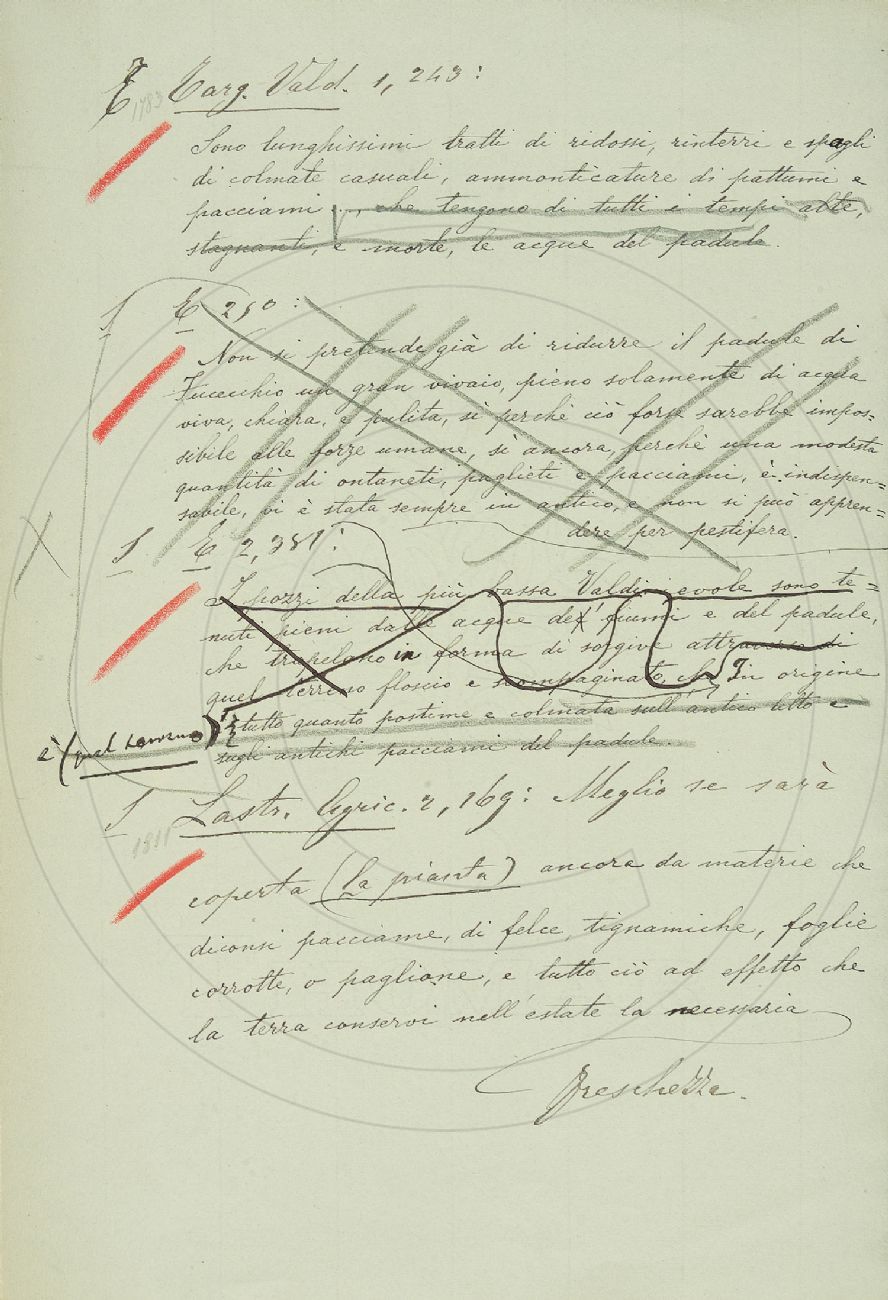 Targ. Vald. 1, 243:
1783
Sono lunghissimi tratti di ridossi, rinterri e spagli
di colmate casuali, ammonticature di pattumi e
pacciami ..., che tengono di tutti i tempi alte,
stagnanti, e morte, le acque del padule.
E 250:
Non si pretende già di ridurre il padule di
Fucecchio un gran vivaio, pieno solamente di acqua
viva, chiara, e pulita, sì perchè ciò forse sarebbe impos=
sibile alle forze umane, sì ancora, perchè una modesta
quantità di ontaneti, paglieti e pacciami, è indispen=
sabile, vi è stata sempre in antico, e non si può appren=
dere per pestifera.
E 2, 381:
I pozzi della più bassa Valdinievole sono te=
nuti pieni dalle acque de' fiumi e del padule,
che trapelano in forma di sorgive attraverso di
quel terreno floscio e scompaginato, che in origine
è (quel terreno) tutto quanto postime e colmata sull'antico letto e
sugli antichi pacciami del padule.
Lastr. Agric. 2, 169: Meglio se sarà
coperta (la pianta) ancora da materie che
diconsi pacciame, di felce, tignamiche, foglie
corrotte, o paglione, e tutto ciò ad effetto che
la terra conservi nell'estate la necessaria
freschezza.